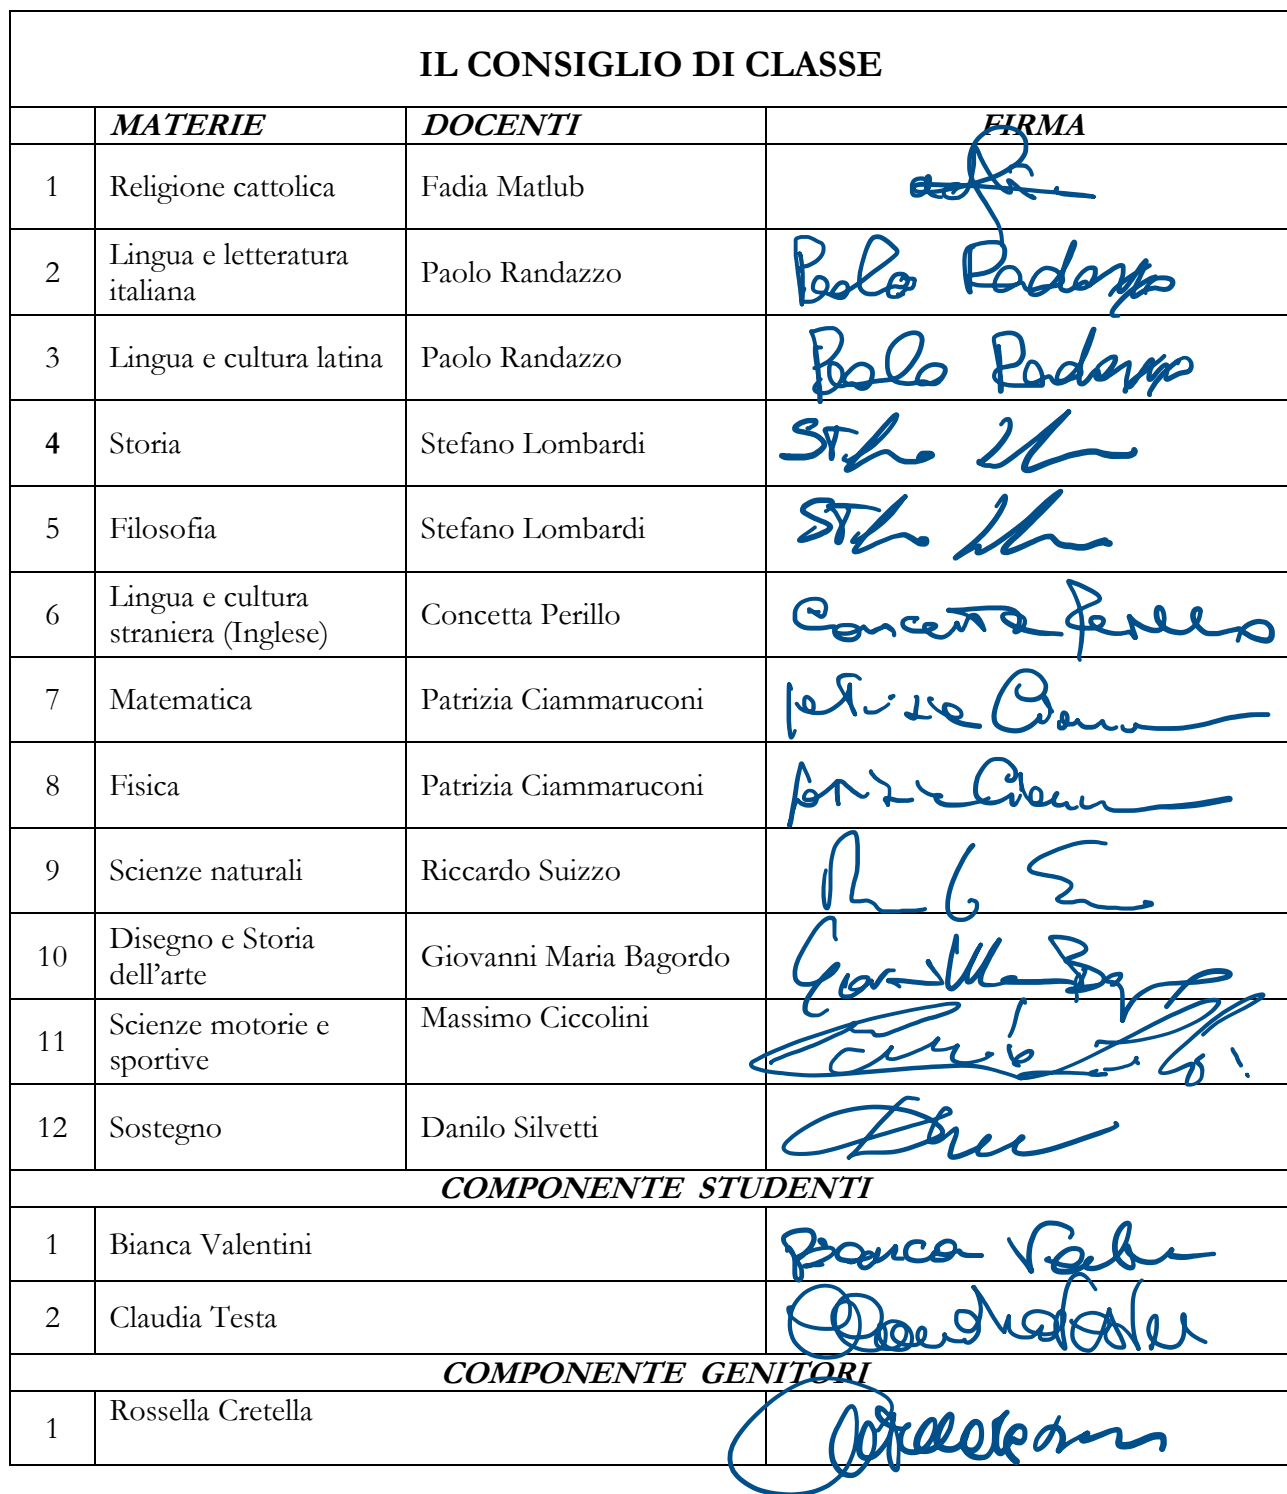 IL CONSIGLIO DI CLASSE
MATERIE DOCENTI FIRMA
1 Religione cattolica Fadia Matlub
2 Lingua e letteratura italiana Paolo Randazzo Paolo Radazzo
3 Lingua e cultura latina Paolo Randazzo Paolo Radazzo
4 Storia Stefano Lombardi
5 Filosofia Stefano Lombardi
6 Lingua e cultura straniera (Inglese) Concetta Perillo Concetta Perillo
7 Matematica Patrizia Ciammaruconi
8 Fisica Patrizia Ciammaruconi
9 Scienze naturali Riccardo Suizzo
10 Disegno e Storia dell'arte Giovanni Maria Bagordo
11 Scienze motorie e sportive Massimo Ciccolini
12 Sostegno Danilo Silvetti
COMPONENTE STUDENTI
1 Bianca Valentini Bianca
2 Claudia Testa Claudia Testa
COMPONENTE GENITORI
1 Rossella Cretella